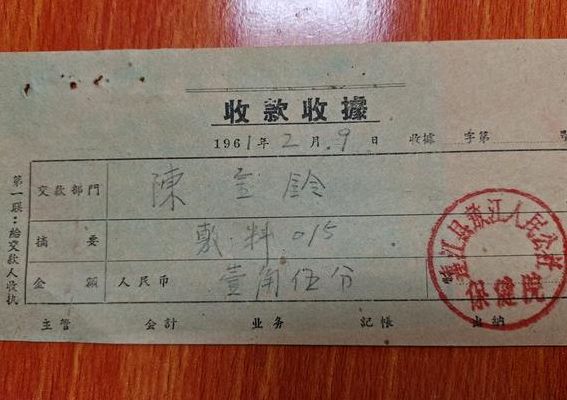 收款收據
1961年2月9日 收據 字第 號
第一联：給交款人收执
交款部門 陳金鈴
摘要 敷料 015
金額 人民币 壹角伍分
江县 江人民公社
主管 会計 业务 記帳 出納